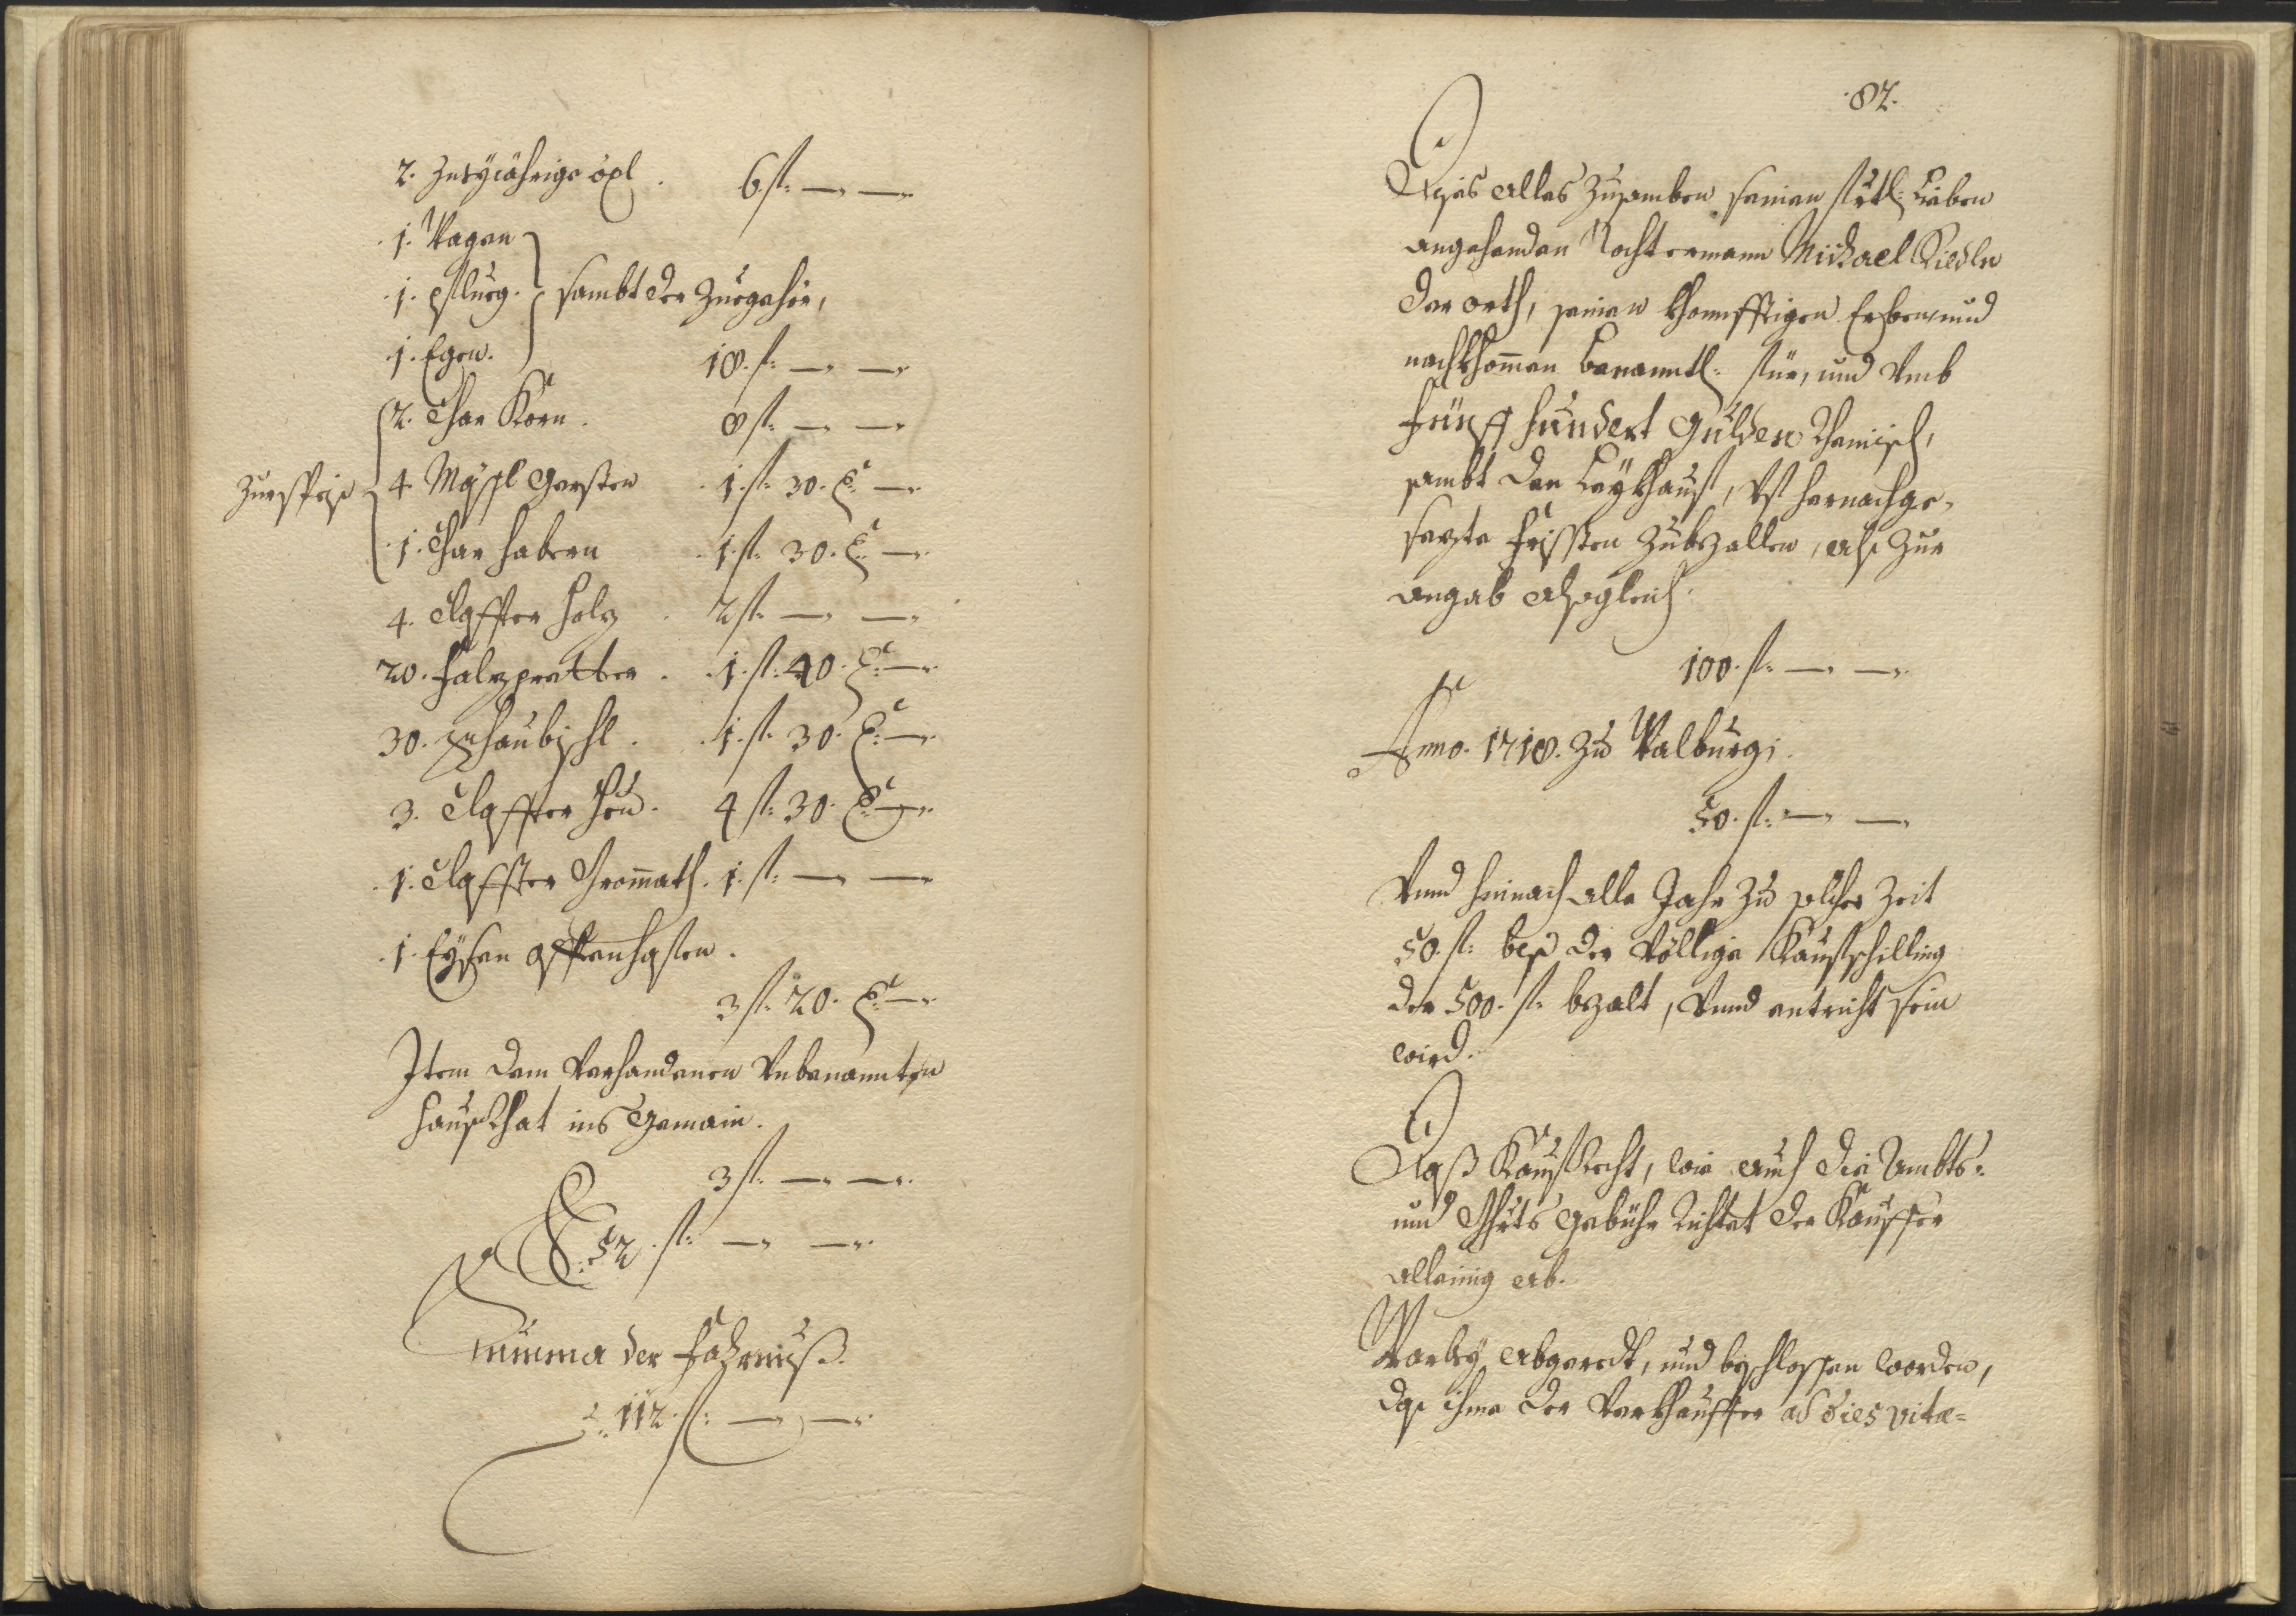 2. Zweyiährige öxl. 6 fl: — —
1. Wagen
1. Pflueg. sambt der Zuegehör,
1. Egen. 18. fl: — —
2. Char Korn. 8 fl: — —
Zur Speiß 4. Mässl Gersten 1. fl: 30. x: —
1. Char habern 1. fl: 30. x: —
4. Claffter holz. 2 fl: — —
20. falzpretter. 1. fl: 40. x: —
30. 1. fl: 30. x: —
3. Claffter heu. 4 fl: 30. x: —
1. Claffter Grommath. 1. fl: — —
1. Eysen offenhafen.
3 fl: 20. x: —
Item dem Verhandenen Unbenannten
haußrhat ins Gemain.
3 fl: — —
52. fl: — —
Summa der Fahrnuß.
112. fl: — —
87.
Dises alles zusamben seinen freutl: Lieben
angehenden Tochtermann Michael Riedler
der orth, seinen khonfftigen Erben und
nachkhommen benanntl: für, und Umb
Fünff hundert Gulden Rheinisch,
sambt den Leykhauff, Uf hernachge-
sezte Frissten zubezallen, als zur
angab alsogleich.
100. fl: — —
Anno. 1718. zu Walburgi.
50. fl: — —
Unnd hernach alle Jahr zu solcher Zeit
50. fl: biß der Völlige Kauffschilling
der 500. fl: bezalt, Unnd entricht sein
wird.
Daß Kauffrecht, wie auch die Ambts-
und Gebühr Richtet der Kauffer
allainig ab.
Warbey abgeredt, und beschlossen worden,
das ihme der Verkhauffer ad dies vitæ=